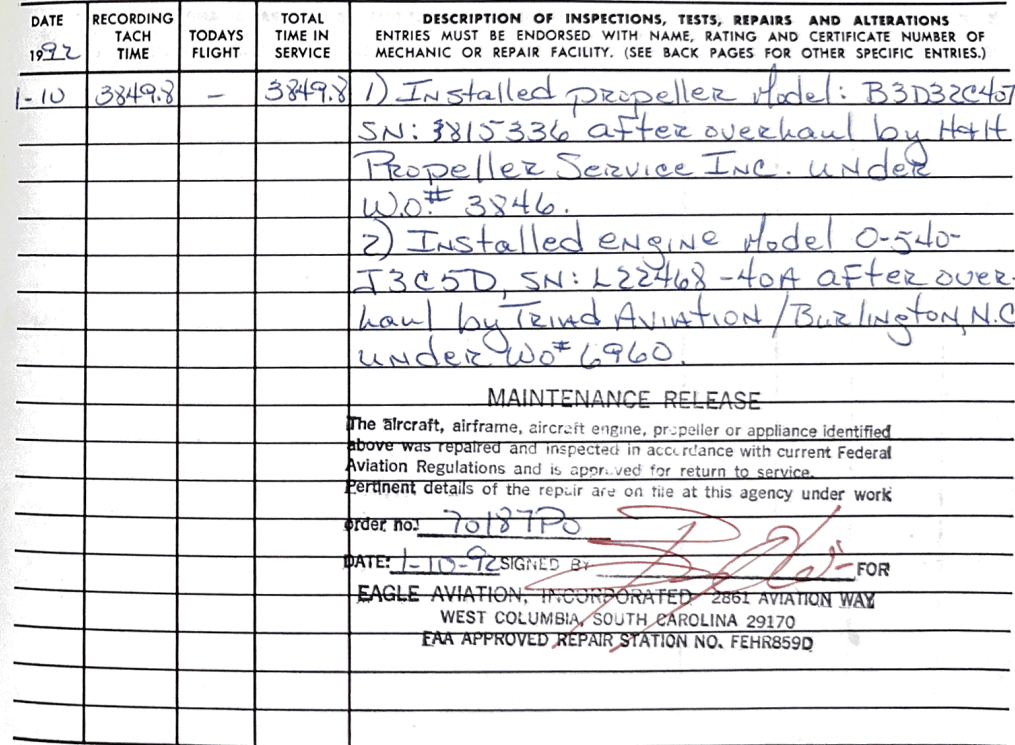 DATE
1992
RECORDING TACH TIME
TODAYS FLIGHT
TOTAL TIME IN SERVICE
DESCRIPTION OF INSPECTIONS, TESTS, REPAIRS AND ALTERATIONS
ENTRIES MUST BE ENDORSED WITH NAME, RATING AND CERTIFICATE NUMBER OF
MECHANIC OR REPAIR FACILITY. (SEE BACK PAGES FOR OTHER SPECIFIC ENTRIES.)
1-10 3849.8 — 3849.8 1) Installed propeller Model: B3D32C407
SN: 3815336 after overhaul by H&H
Propeller Service Inc. under
W.O.# 3846.
2) Installed engine Model O-540-
J3C5D, SN: L22468-40A after over-
haul by Triad Aviation/Burlington, N.C
under WO# 6960.
MAINTENANCE RELEASE
The aircraft, airframe, aircraft engine, propeller or appliance identified
above was repaired and inspected in accordance with current Federal
Aviation Regulations and is approved for return to service.
Pertinent details of the repair are on file at this agency under work
order no. 70187PO
DATE: 1-10-92 SIGNED BY FOR
EAGLE AVIATION, INCORPORATED 2861 AVIATION WAY
WEST COLUMBIA, SOUTH CAROLINA 29170
FAA APPROVED REPAIR STATION NO. FEHR859D